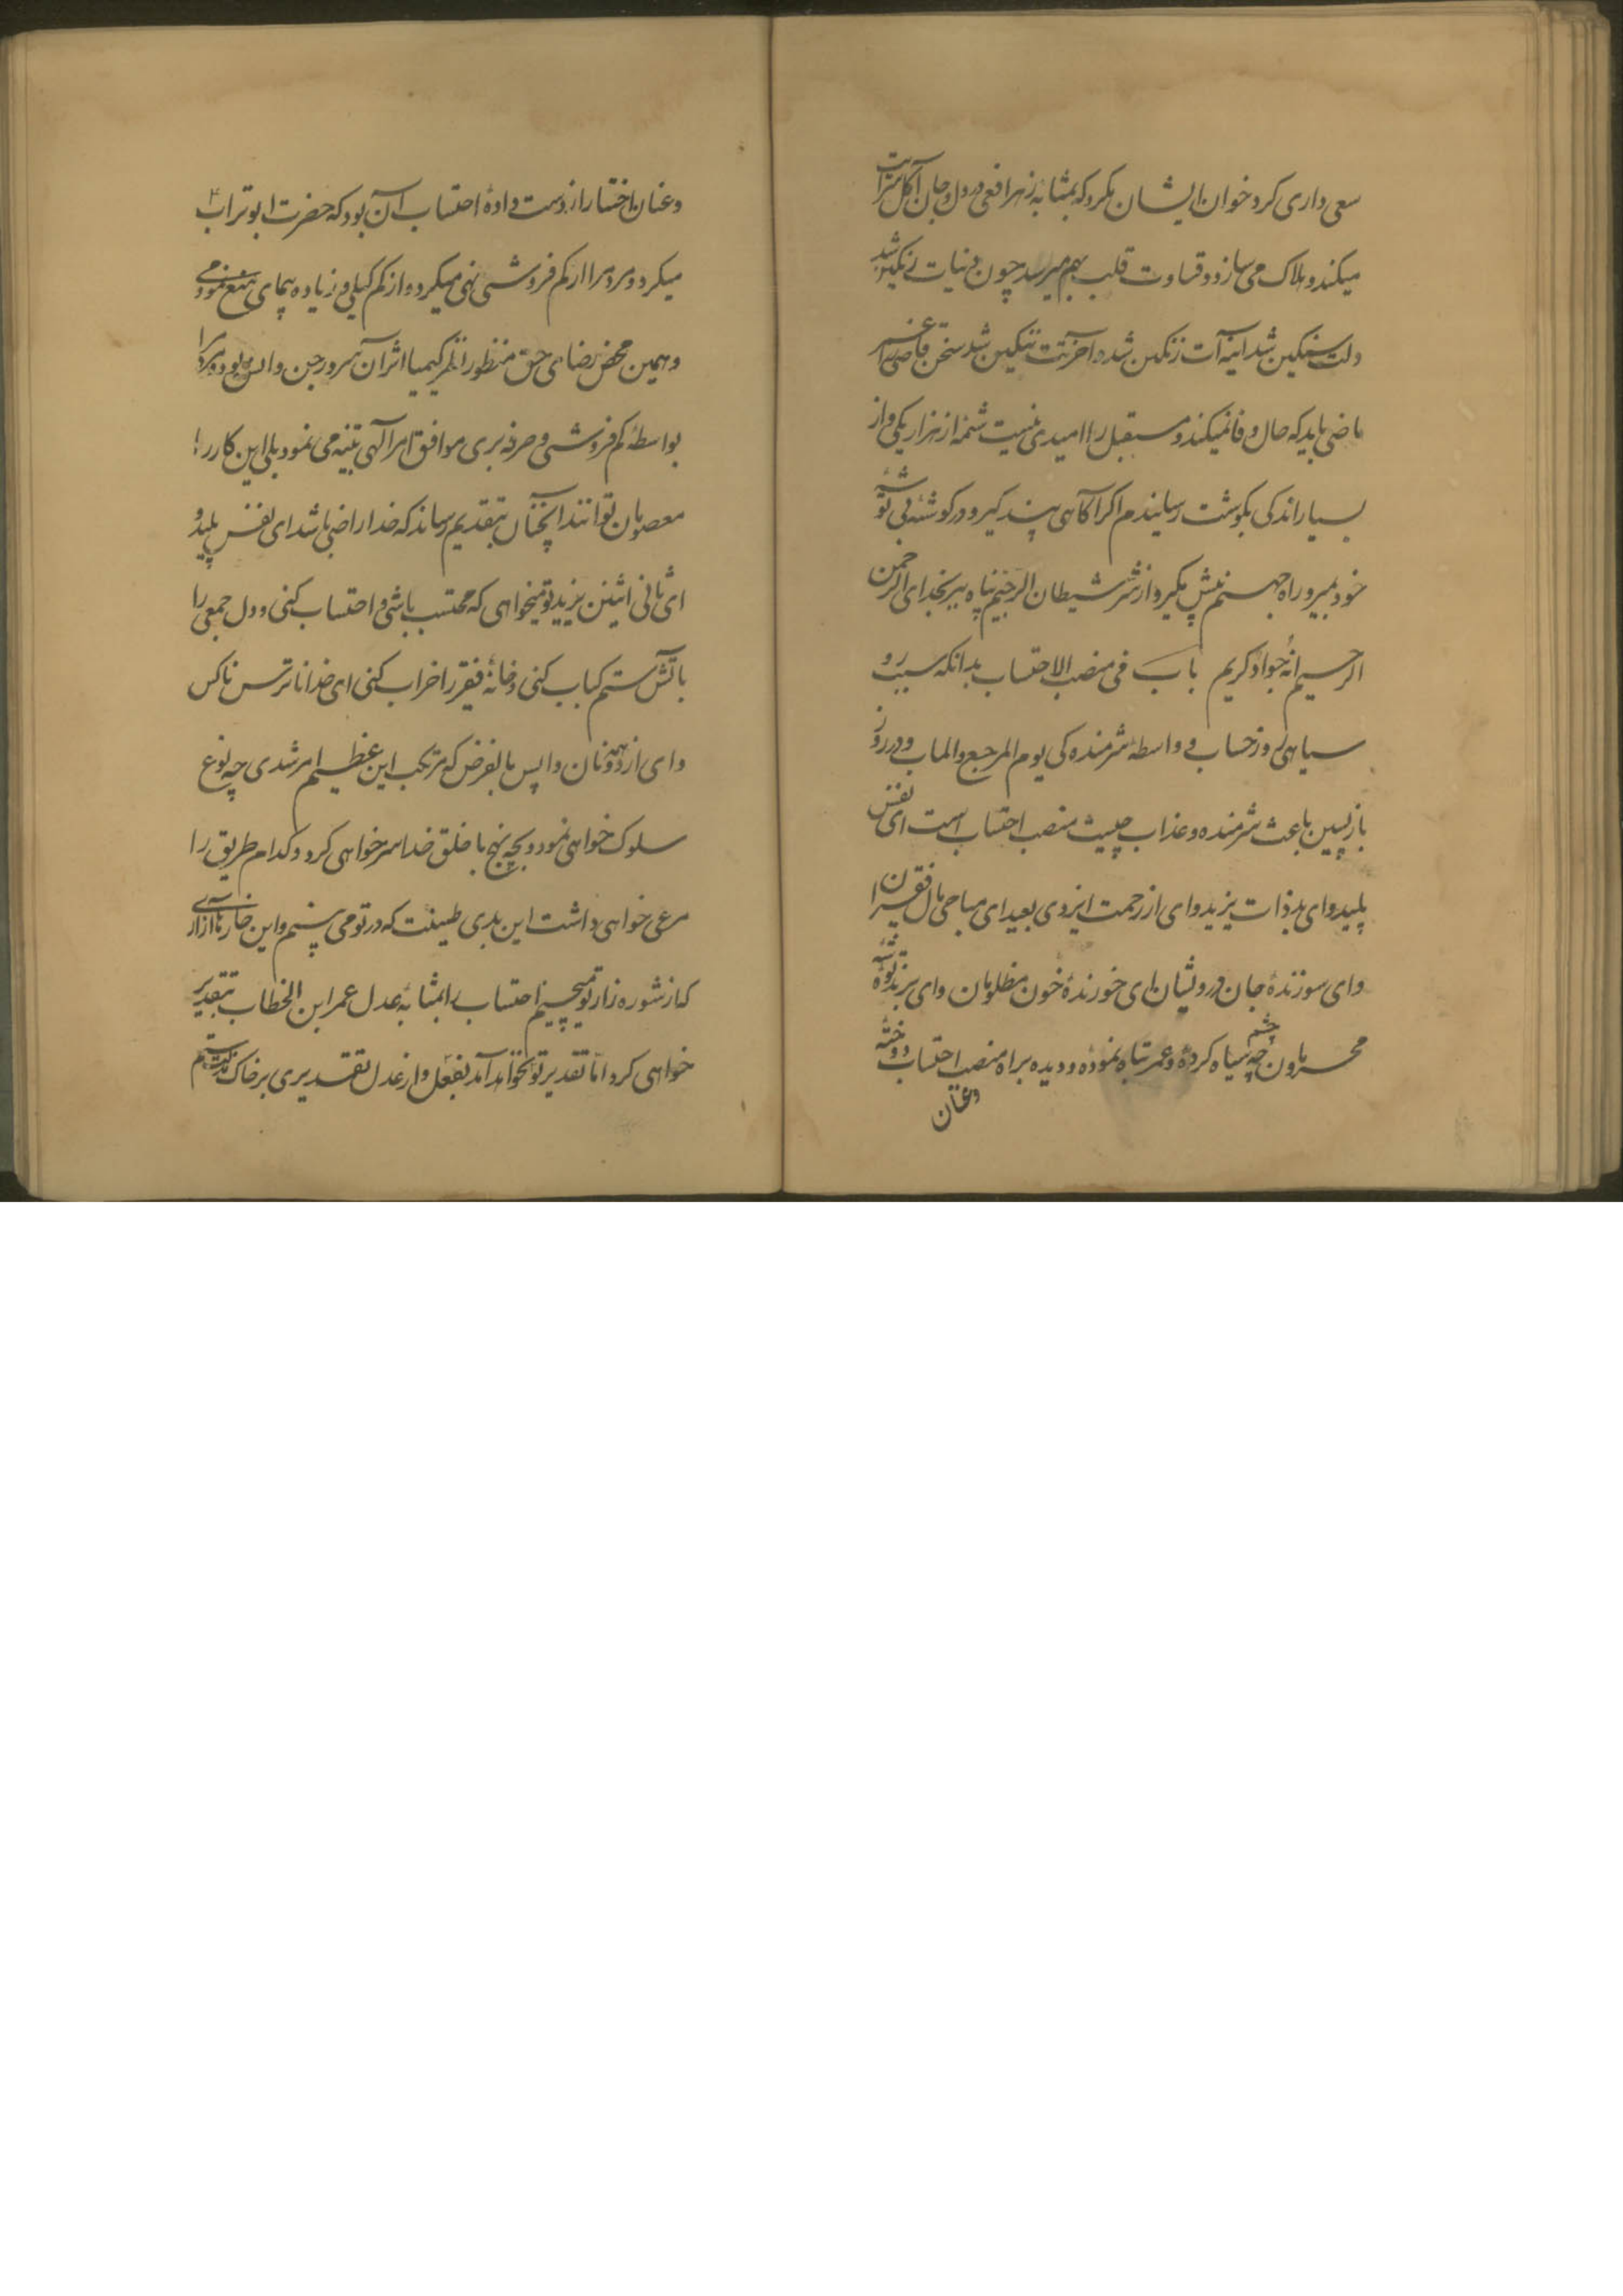 سعی داری کرد خوان ایشان مکرد که بمثابه زهر افعی در دل و جان آکل سرایت
میکند و هلاک می سازد و قساوت قلب بهم میرسد چون دنیات رنگین شد
دلت سنگین شد آینه آت زنگین شد و آخرتت ننگین شد سخن قاضی را عمر
ماضی باید که حال وفا نمیکند و مستقبل را امیدی نیست شمه از هزار یکی و از
بسیار اندکی بگوشت رسانیدم اگر آگاهی پند گیر و در گوشه بی توشه
خود بمیر و راه جهنم پیش مگیر و از شر شیطان الرجیم پناه ببر بخدای الرحمن
الرحیم انه جواد کریم باب فی منصب الاحتساب بدانکه سبب رو
سیاهی روز حساب و واسطه شرمنده کی یوم المرجع والماب و در روز
بازپسین باعث شرمنده و عذاب چیست منصب احتساب است ای نفس
پلید وای بدذات یزید وای از رحمت ایزدی بعید ای مباحی مال فقیران
وای سوزندهٔ جان درویشان ای خورندهٔ خون مظلومان وای برندهٔ توشه
محرمان چه چشم سیاه کردهٔ و عمر تباه نمودهٔ و دیده براه منصب احتساب دوختهٔ
وعنان
وعنان اختیار از دست دادهٔ احتساب آن بود که حضرت ابوتراب
میکرد و مردم را از کم فروشی نهی میکرد و از کم کیلی و زیاده پیمای منع می نمودی
و همین محض رضای حق منظور نظر کیمیا اثر آن سرور جن و انس بود و مردم را
بواسطه کم فروشی و صرفه بری موافق امر الهی تنبیه می نمود بلی این کار را
معصومان توانند آنچنان بتقدیم رساند که خدا راضی باشد ای نفس پلید و
ای ثانی اثنین یزید تو میخواهی که محتسب باشی و احتساب کنی و دل جمعی را
بآتش ستم کباب کنی و خانهٔ فقیر را خراب کنی ای خدا ناترس ناکس
وای از همه دونان واپس بالفرض که مرتکب این عظیم امر شدی چه نوع
سلوک خواهی نمود و بچه نهج با خلق خدا سر خواهی کرد و کدام طریق را
مرعی خواهی داشت این بدی طینت که در تو می بینم و این خار
که از شوره زار تو میچینم احتساب را بمثابه عدل عمر ابن الخطاب بتقدیر
خواهی کرد اما تقدیر تو نخواهد آمد بفعل و از عدل تقدیری بر خاک مذلت